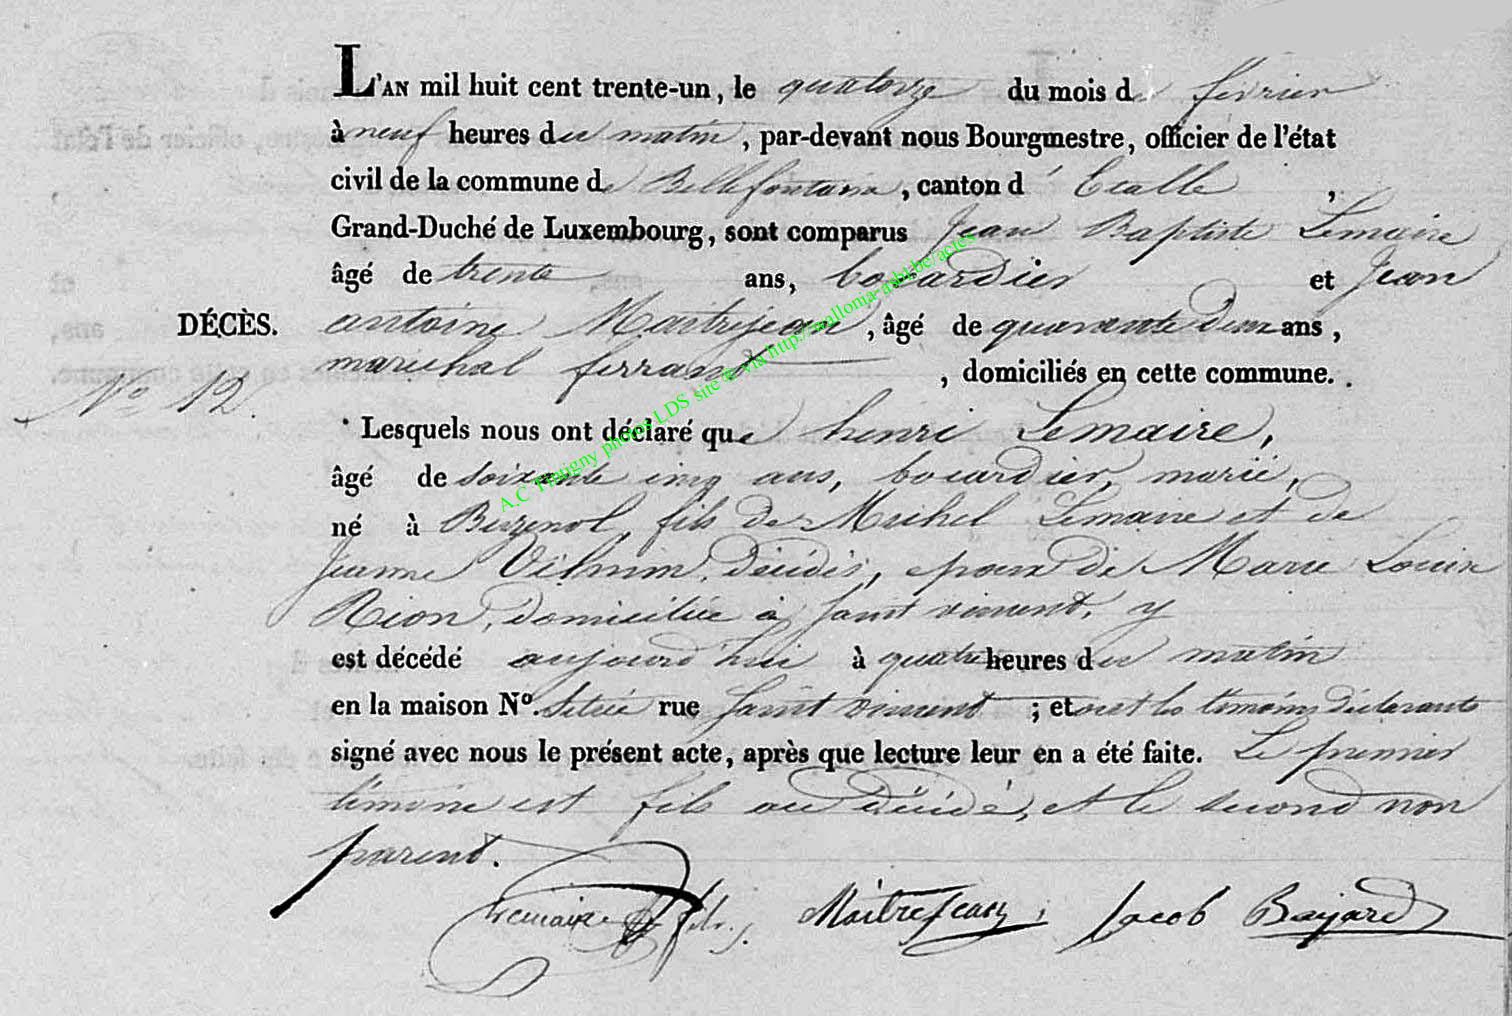 L'AN mil huit cent trente-un, le quatorze du mois de février
à neuf heures du matin, par-devant nous Bourgmestre, officier de l'état
civil de la commune de Bellefontaine, canton d' Etalle,
Grand-Duché de Luxembourg, sont comparus Jean Baptiste Lemaire
âgé de trente ans, bocardier et Jean
DÉCÈS. antoine Maitrejean, âgé de quarante deux ans,
marechal ferrant, domiciliés en cette commune.
No 12.
Lesquels nous ont déclaré que henri Lemaire,
âgé de soixante cinq ans, bocardier, marié,
né à Buzenol, fils de Michel Lemaire et de
Jeanne décédés, époux de Marie Louise
Rion, domiciliée à Saint vincent, y
est décédé aujourd'hui à quatre heures du matin
en la maison No. située rue Saint vincent ; et ont les témoins déclarants
signé avec nous le présent acte, après que lecture leur en a été faite. Le premier
témoin est fils au décédé, et le second non
parent.
Lemaire fils. Maitrejean Jacob Bayard
A.C Tintigny photos LDS site & via http://wallonia-asbl.be/actes